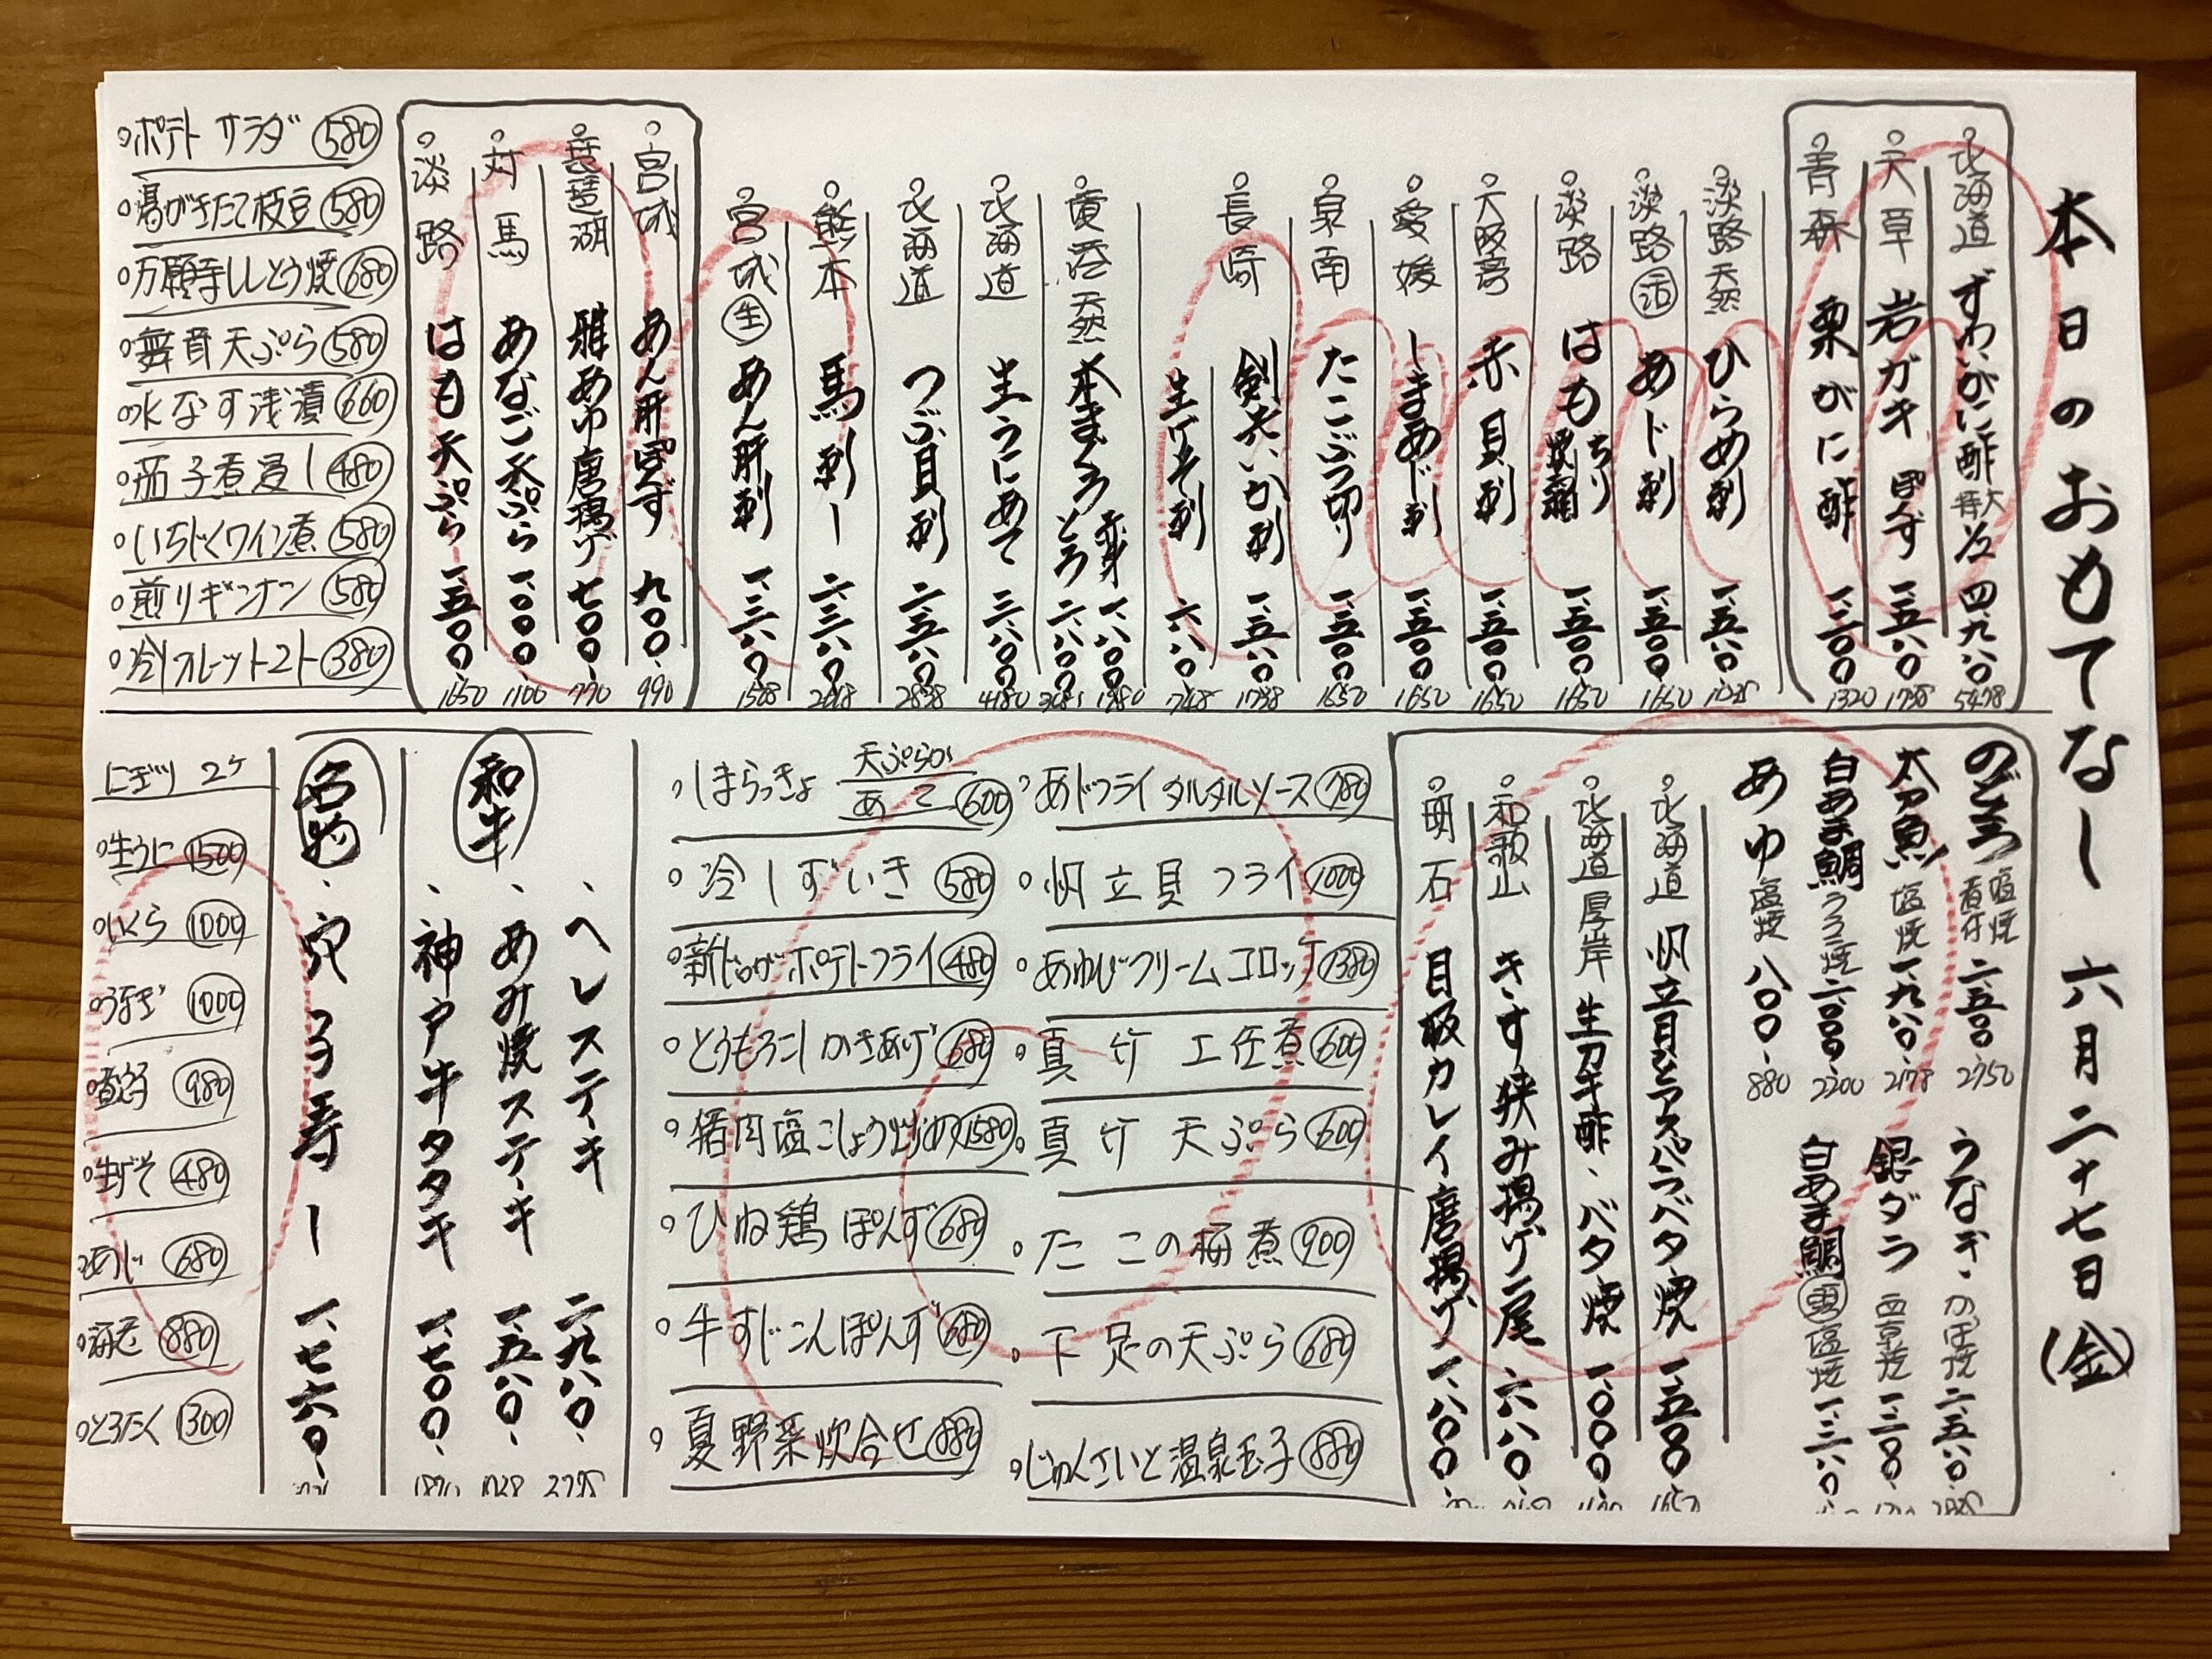 本日のおもてなし 六月二十七日(金)
北海道 ずわいがに酢 特大 1/2 四九八〇 5478
天草 岩ガキ ぽんず 一、五八〇 1738
青森 栗がに酢 一、二〇〇 1320
淡路 天然 ひらめ刺 一、五八〇
淡路 活 あじ刺 一、五〇〇 1650
淡路 はも ちり 焼霜 一、五〇〇 1650
大阪湾 赤貝刺 一、五〇〇 1650
愛媛 しまあじ刺 一、五〇〇 1650
泉南 たこぶつ切り 一、五〇〇 1650
長崎 剣先いか刺 一、五八〇 1738
生げそ刺 六八〇 748
黄港 天然 本まぐろ 赤身 一、八〇〇 1980
とろ 二、八〇〇
北海道 生うにあて 三、八〇〇 4180
北海道 つぶ貝刺 二、五八〇 2838
熊本 馬刺し 二、三八〇 2618
宮城 生 あん肝刺 一、三八〇 1518
宮城 あん肝ぽんず 九〇〇 990
琵琶湖 稚あゆ唐揚げ 七〇〇 770
対馬 あなご天ぷら 一、〇〇〇 1100
淡路 はも天ぷら 一、五〇〇 1650
ポテトサラダ 580
湯がきたて枝豆 580
万願寺ししとう焼 680
舞茸天ぷら 580
水なす浅漬 660
茄子煮浸し 480
いちじくワイン煮 580
煎りギンナン 580
冷しフルーツトマト 380
のどぐろ 塩焼 煮付 二、五〇〇 2750
太刀魚 塩焼 一、九八〇 2178
白あま鯛 うろこ焼 二、〇〇〇 2200
あゆ 塩焼 八〇〇 880
うなぎ かば焼 二、五八〇
銀ダラ 西京焼 一、二〇〇
白あま鯛 頭 塩焼 一、三八〇
北海道 帆立貝とアスパラバター焼 一、五〇〇 1650
北海道 厚岸 生ガキ酢、バター焼 一、〇〇〇 1100
和歌山 きす挟み揚げ二尾 六八〇
明石 目板カレイ唐揚げ 一、八〇〇
あじフライ タルタルソース 780
帆立貝フライ 1000
あわびクリームコロッケ 1380
真竹 土佐煮 600
真竹 天ぷら 600
たこの梅煮 900
下足の天ぷら 680
じゅんさいと温泉玉子 880
しまらっきょ 天ぷらor あて 600
冷しずいき 580
新じゃがポテトフライ 480
とうもろこしかきあげ 680
猪肉塩こしょう炒め 1580
ひね鶏ぽんず 680
牛すじこんぽんず 680
夏野菜炊合せ 880
和牛
ヘレステーキ 二、九八〇
あみ焼ステーキ 一、五八〇
神戸牛タタキ 一、七〇〇 1870
名物
穴子寿し 一、七六〇
にぎり 2ケ
生うに 1500
いくら 1000
うなぎ 1000
煮穴子 980
生げそ 480
あじ 680
海老 880
とろたく 1300